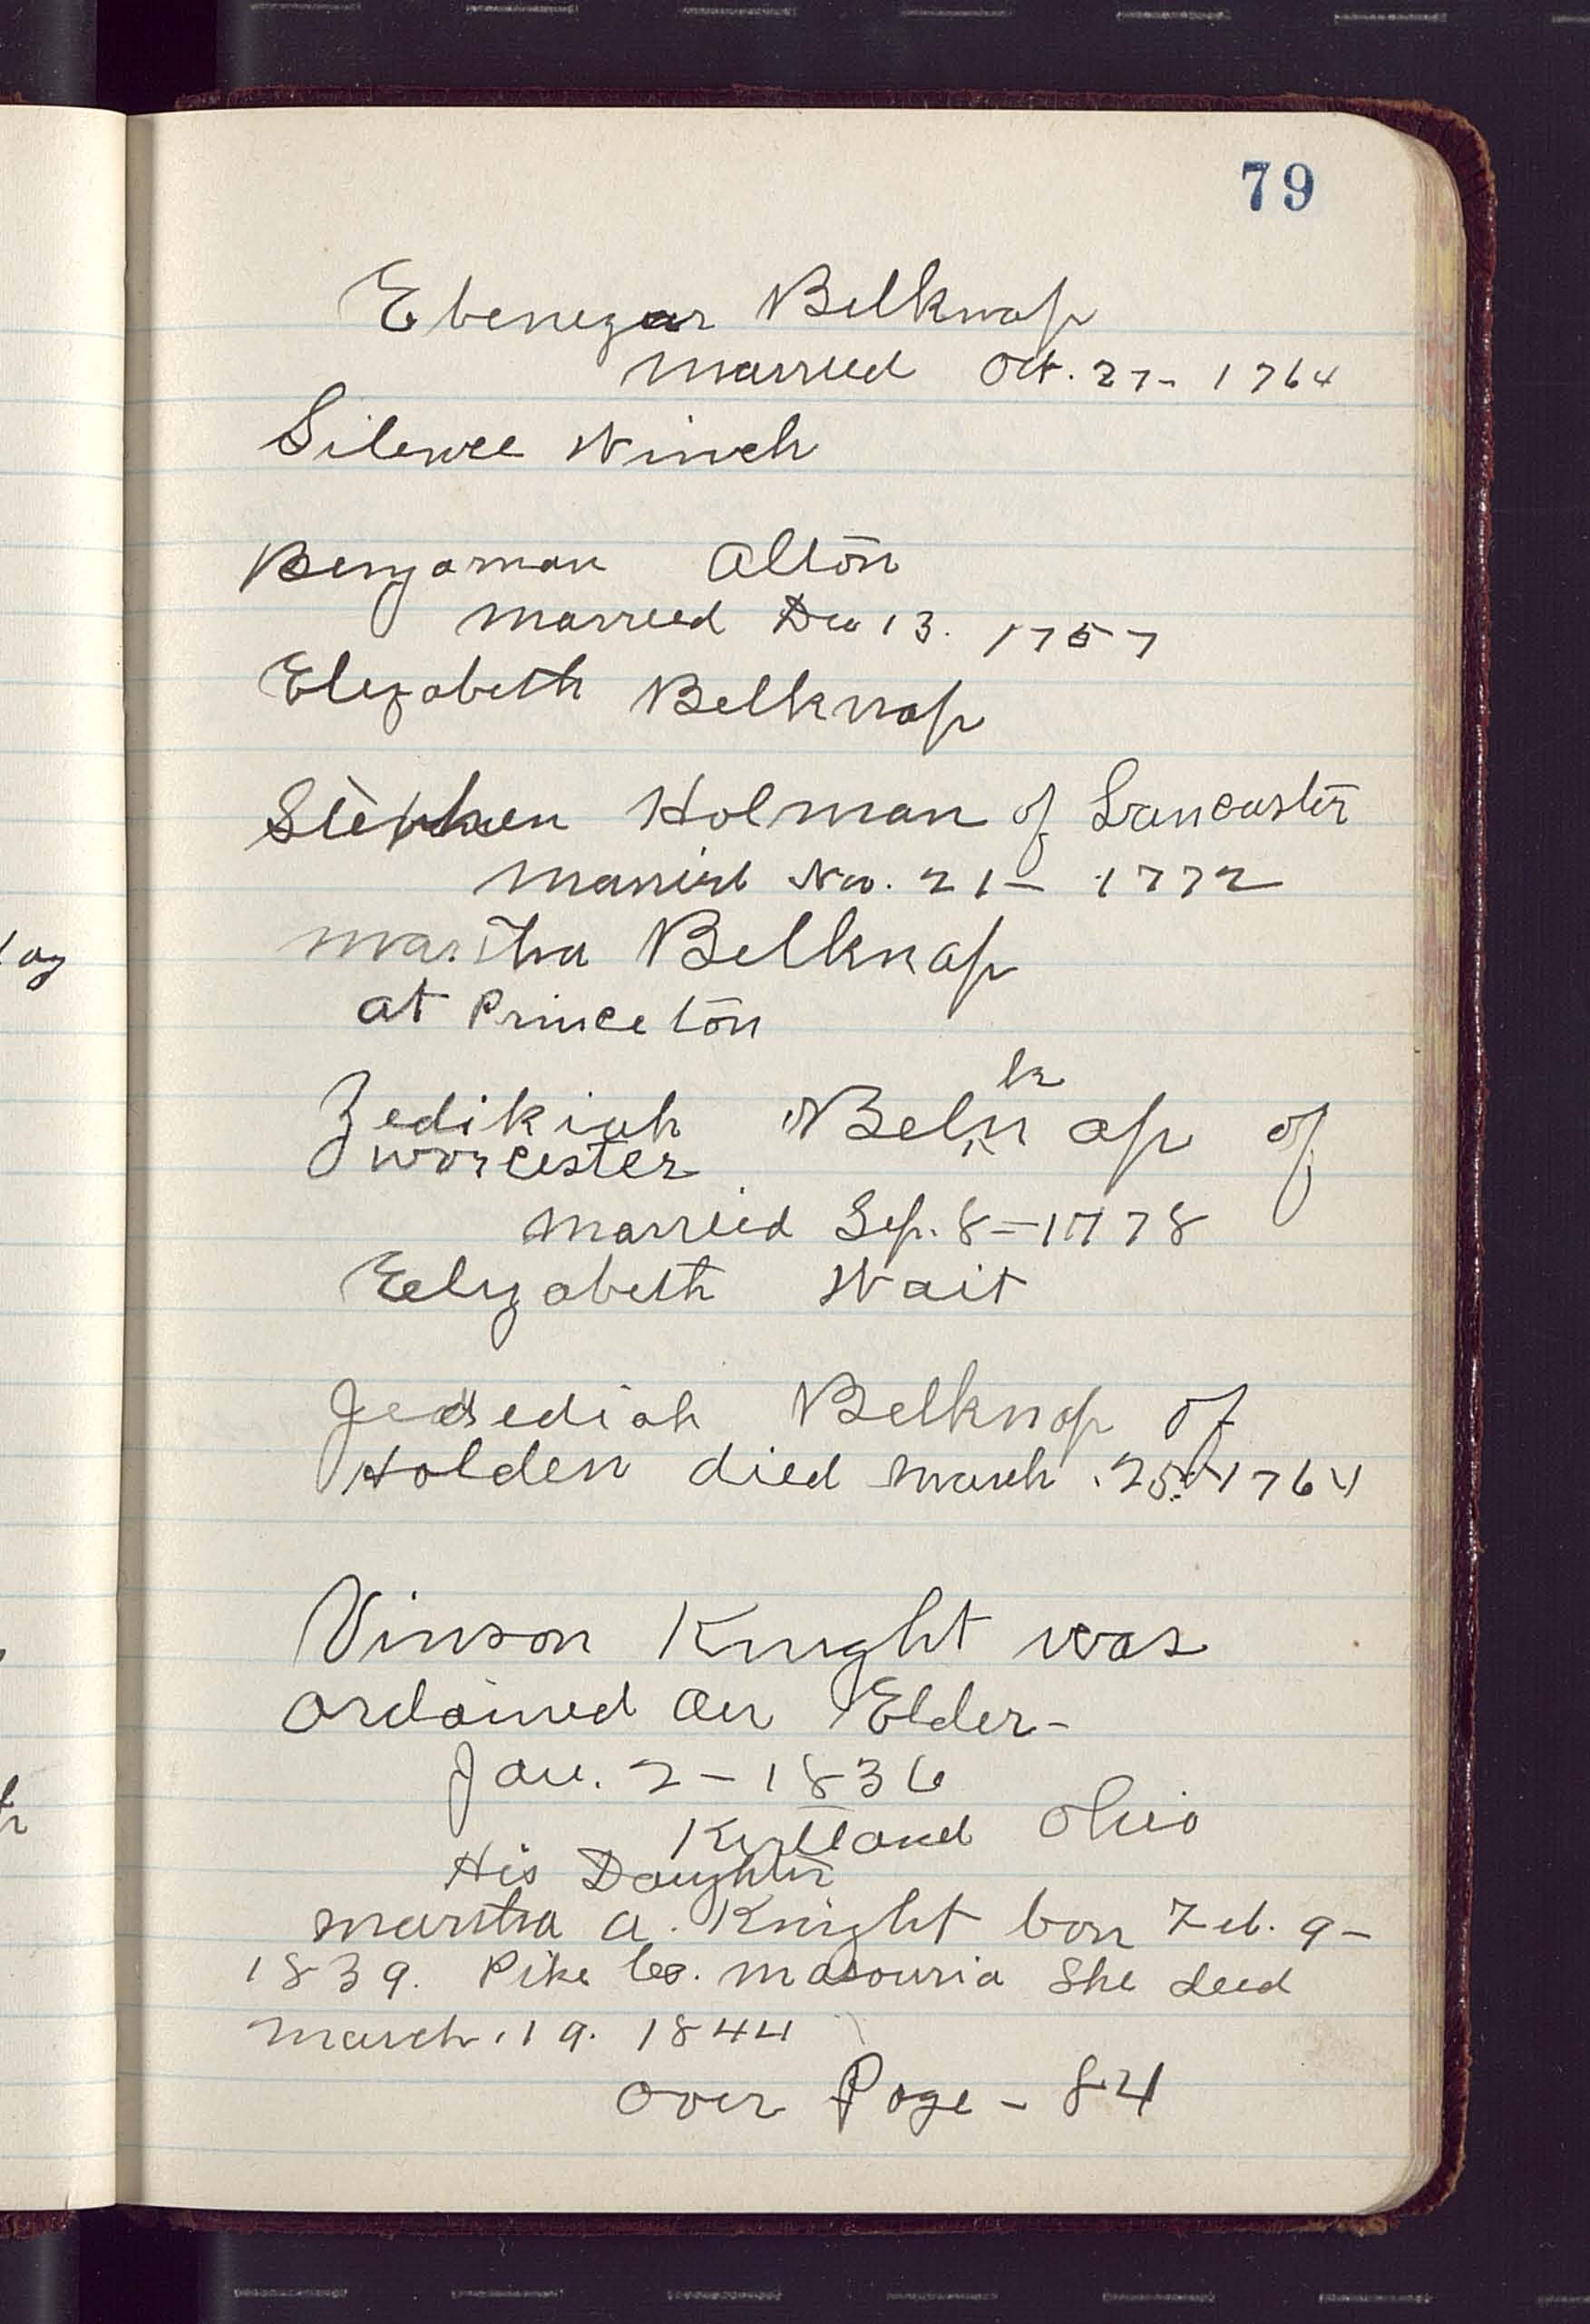 79
Ebenezar Belknap
married Oct. 27- 1764
Silence Winch
Benjaman Alton
married Dec 13. 1757
Elezabeth Belknap
Stephen Holman of Lancaster
married Nov. 21- 1772
martha Belknap
at Princeton
Zedikiah Belknap of
worcester
married Sep. 8-1778
Eelizabeth Wait
Jedediah Belknap of
Holden died march . 25. 1764
Vinson Knight was
ordained an Elder-
Jan. 2-1836
Kirtland Ohio
His Daughter
martha a. Knight born Feb. 9-
1839. Pike Co. masouria She deed
march. 19. 1844
over Page - 84